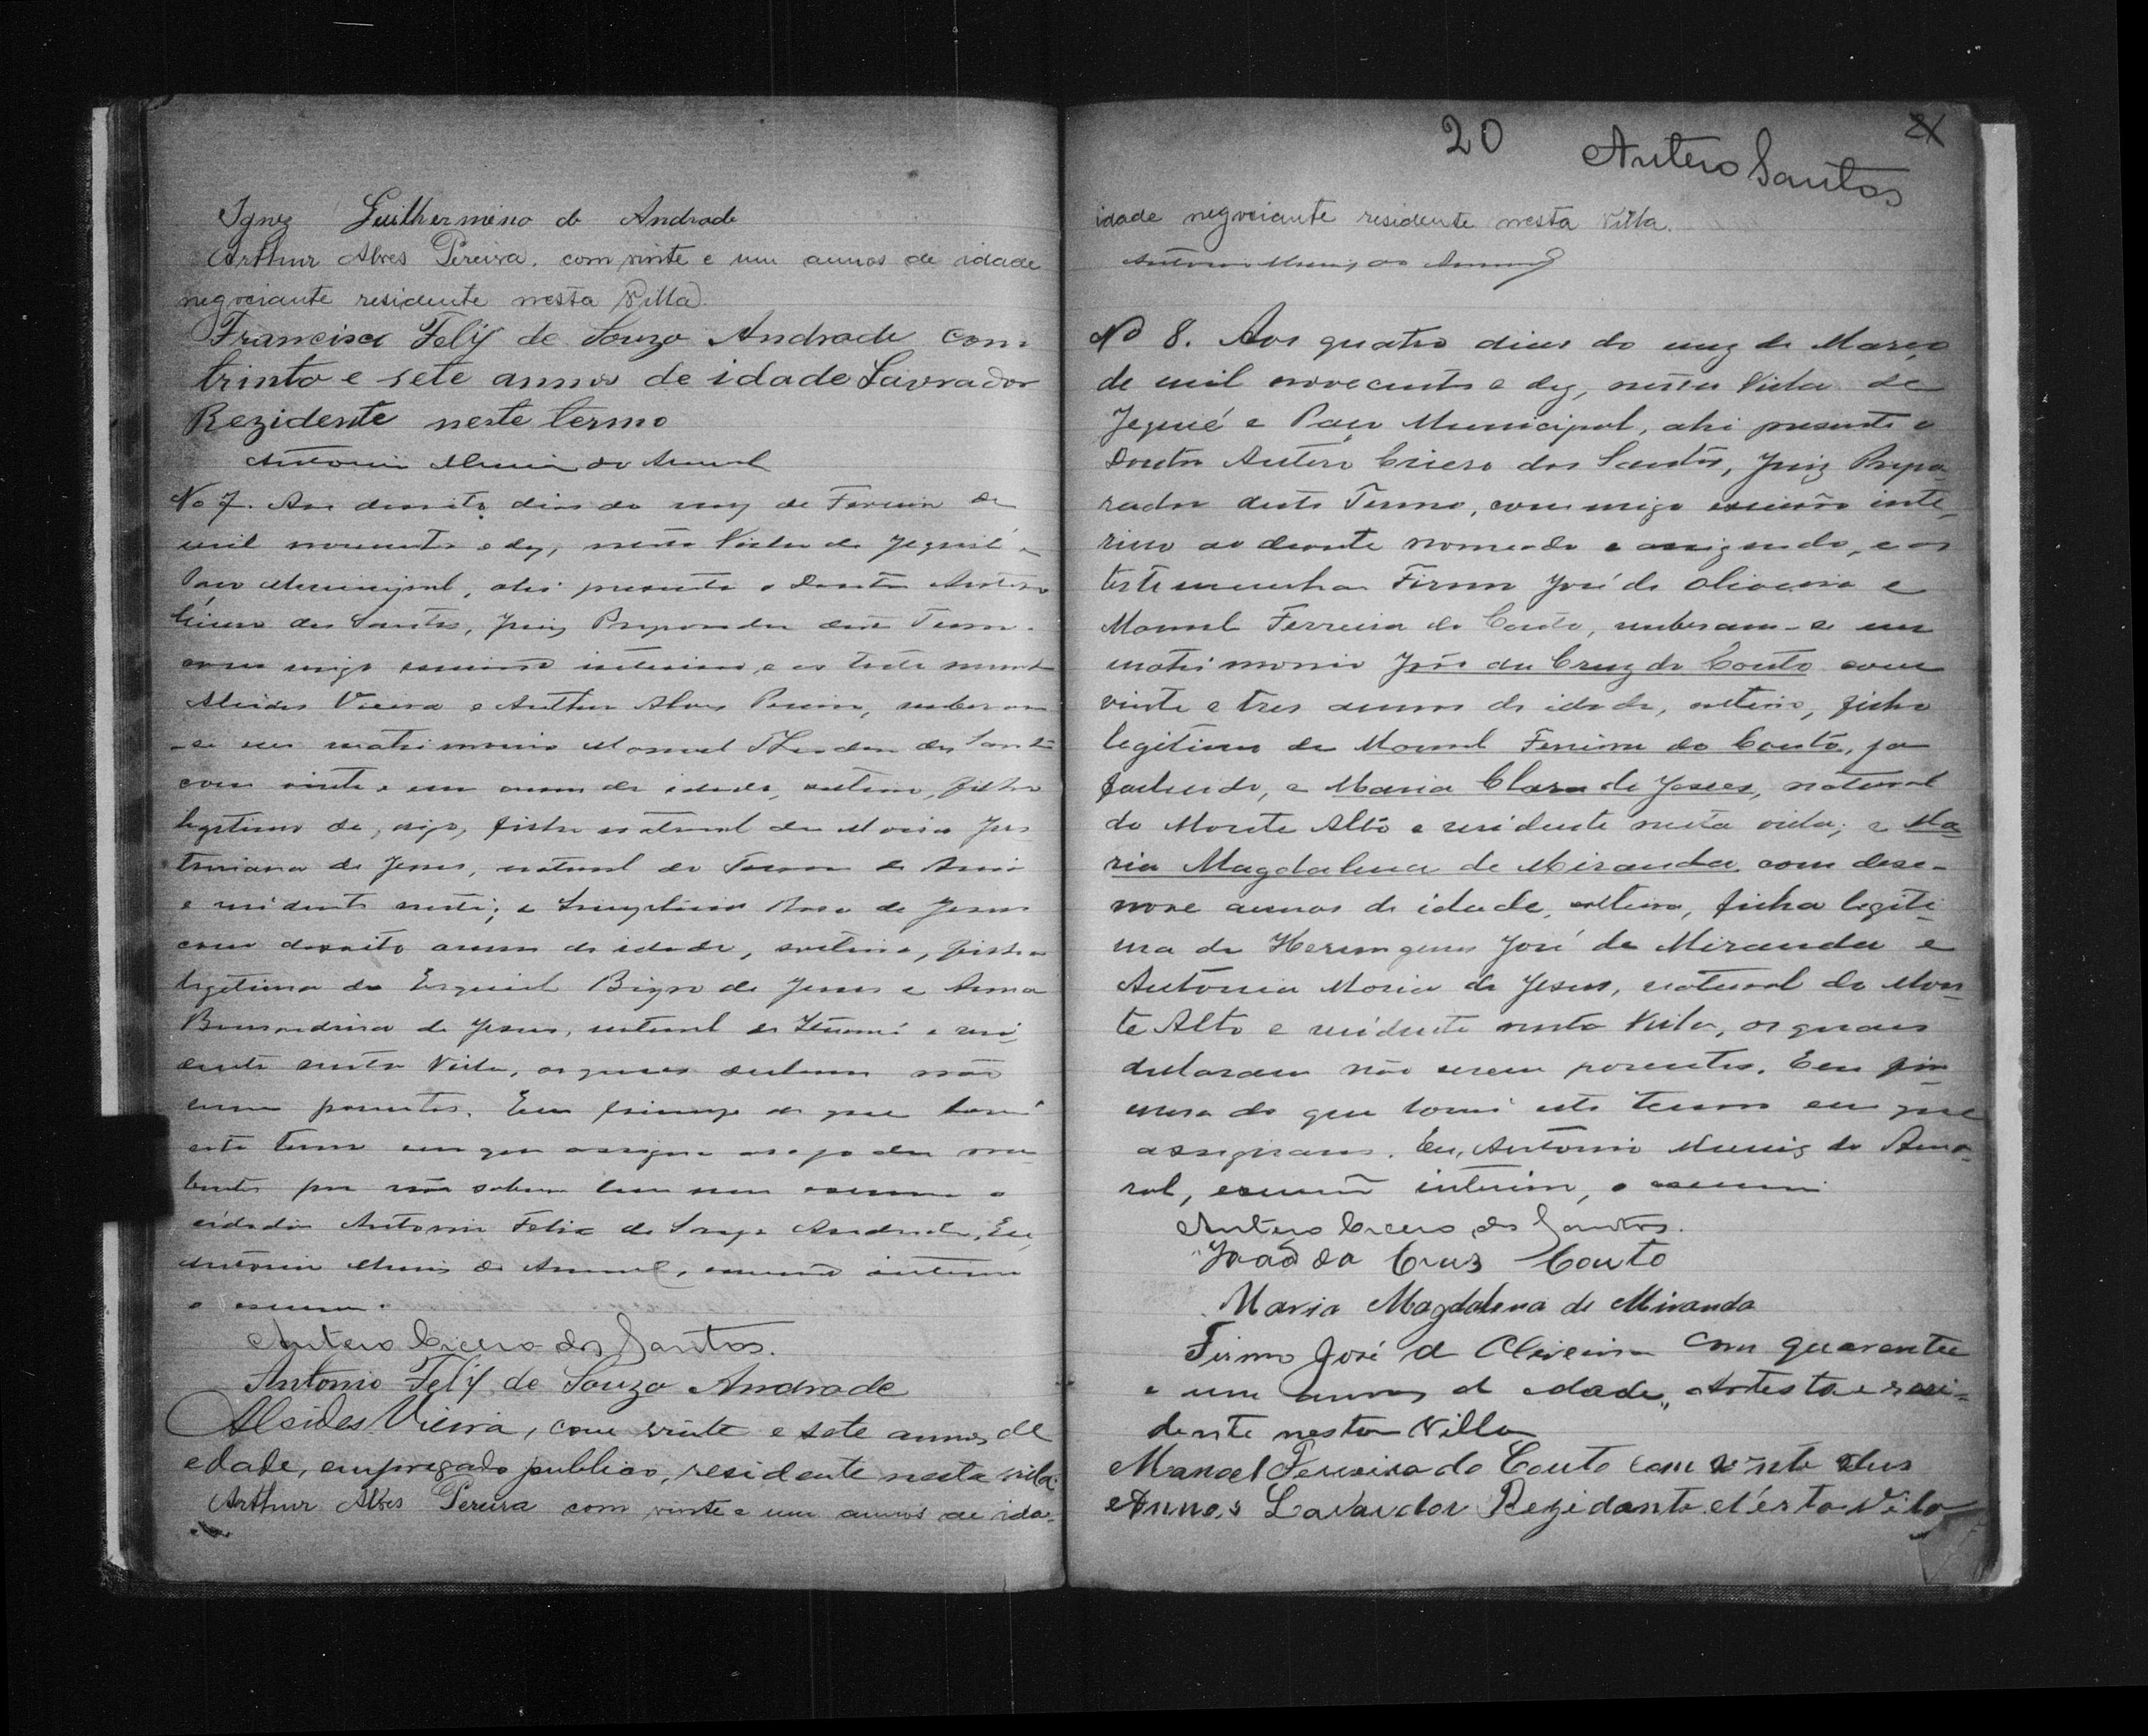 Ignez Guilhermina de Andrade
Arthur Alves Pereira, com vinte e um annos de idade
negociante residente nesta Villa.
Francisco Felix de Souza Andrade com
trinta e sete annos de idade Lavrador
Rezidente neste termo
Antonio Muniz do Amaral
No 7. Aos desoito dias do mez de Fevereiro de
mil novecentos e dez, nesta Villa de Jequié e
Paço Municipal, ahi presente o Doutor Antero
Cicero dos Santos, Juiz Preparador deste Termo
commigo escrivão interino, e as testemunhas
Alcides Vieira e Arthur Alves Pereira, receberam
-se em matrimonio Manoel Theodoro dos Santos
com vinte e um annos de idade, solteiro, filho
legitimo de, digo, filho natural de Maria
de Jesus, natural do Termo de
e residente neste; e Rosa de Jesus
com desoito annos de idade, solteira, filha
legitima de Ezequiel de Jesus e Anna
de Jesus, natural de e resi
dente nesta Villa, os quaes declararam não
serem parentes. Em firmeza do que lavrei
este termo em que assigna a rogo dos nu
bentes por não saberem ler nem escrever o
cidadão Antonio Felix de Souza Andrade. Eu,
Antonio Muniz do Amaral, escrivão interino
o escrevi.
Antero Cicero dos Santos.
Antonio Felix de Souza Andrade
Alcides Vieira, com vinte e sete annos de
edade, empregado publico, residente nesta villa.
Arthur Alves Pereira com vinte e um annos de ida-
20 Antero Santos
21
idade negociante residente nesta Villa.
Antonio Muniz do Amaral
No 8. Aos quatro dias do mez de Março
de mil novecentos e dez, nesta Villa de
Jequié e Paço Municipal, ahi presente o
Doutor Antero Cicero dos Santos, Juiz Prepa-
rador deste Termo, commigo escrivão inte-
rino ao deante nomeado e assignado, e as
testemunhas Firmo José de Oliveira e
Manoel Ferreira do Couto, receberam-se em
matrimonio João da Cruz do Couto com
vinte e tres annos de idade, solteiro, filho
legitimo de Manoel Ferreira do Couto, ja
fallecido, e Maria Clara de Jesus, natural
de Monte Alto e residente nesta villa; e Ma
ria Magdalena de Miranda com dese-
nove annos de idade, solteira, filha legiti-
ma de Hermogenes José de Miranda e
Antonia Maria de Jesus, natural de Mon-
te Alto e residente nesta Villa, os quaes
declararam não serem parentes. Em fir-
meza do que lavrei este termo em que
assignam. Eu, Antonio Muniz do Ama-
ral, escrivão interino, o escrevi
Antero Cicero dos Santos.
João da Cruz Couto
Maria Magdalena de Miranda
Firmo José de Oliveira com quarenta
e um annos de edade, Artista e resi-
dente nesta Villa
Manoel Ferreira do Couto com vinte e dus
Annos Lavardor Rezidante n'ésta Vila